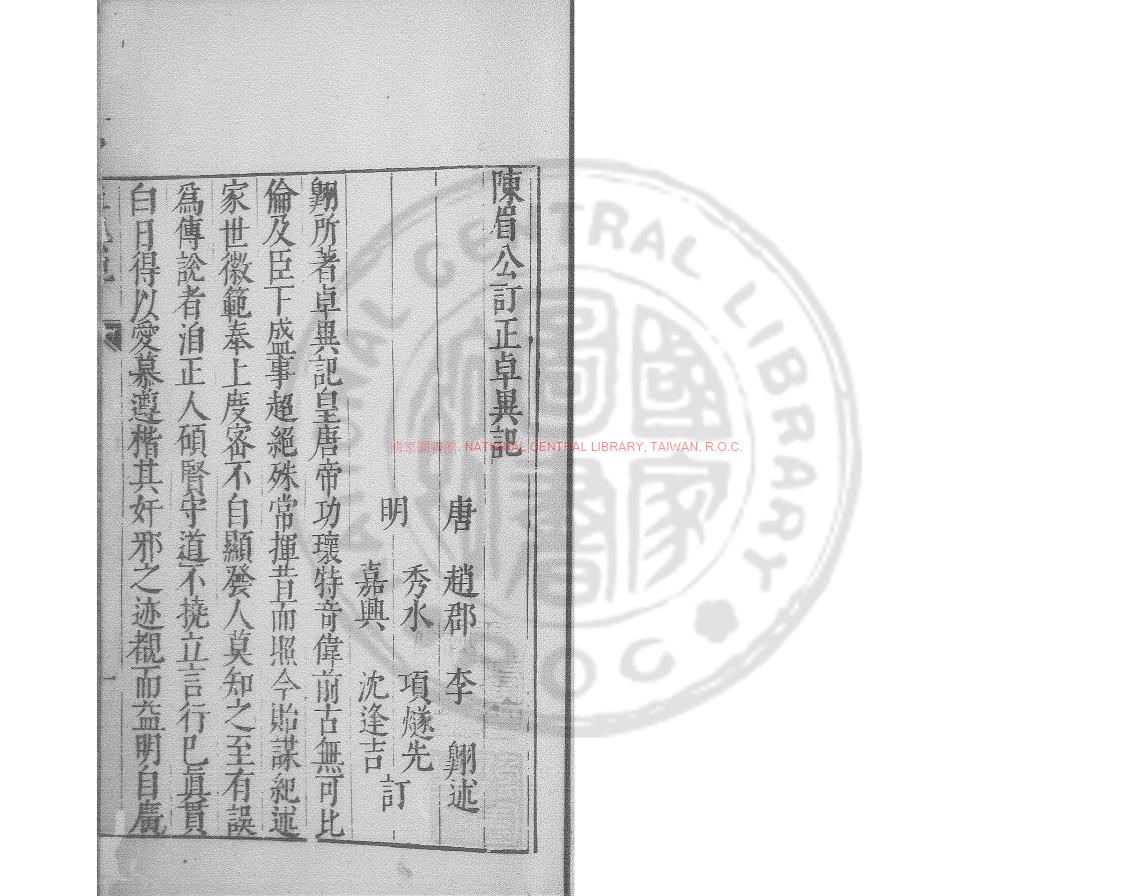 陳眉公訂正卓異記
唐 趙郡 李 翺述
明 秀水 項燧先 訂
嘉興 沈逢吉
翺所著卓異記皇唐帝功瓌特竒偉前古無可比
倫及臣下盛事超絕殊常揮昔而照今貽謀紀述
家世徽範奉上度密不自顯發人莫知之至有誤
爲傳說者洎正人碩賢守道不撓立言行已眞貫
白日得以愛慕遵楷其奸邪之迹覩而益明自廣
NATIONAL CENTRAL LIBRARY, TAIWAN, R.O.C.
NATIONAL CENTRAL LIBRARY
R.O.C.
國家圖書館